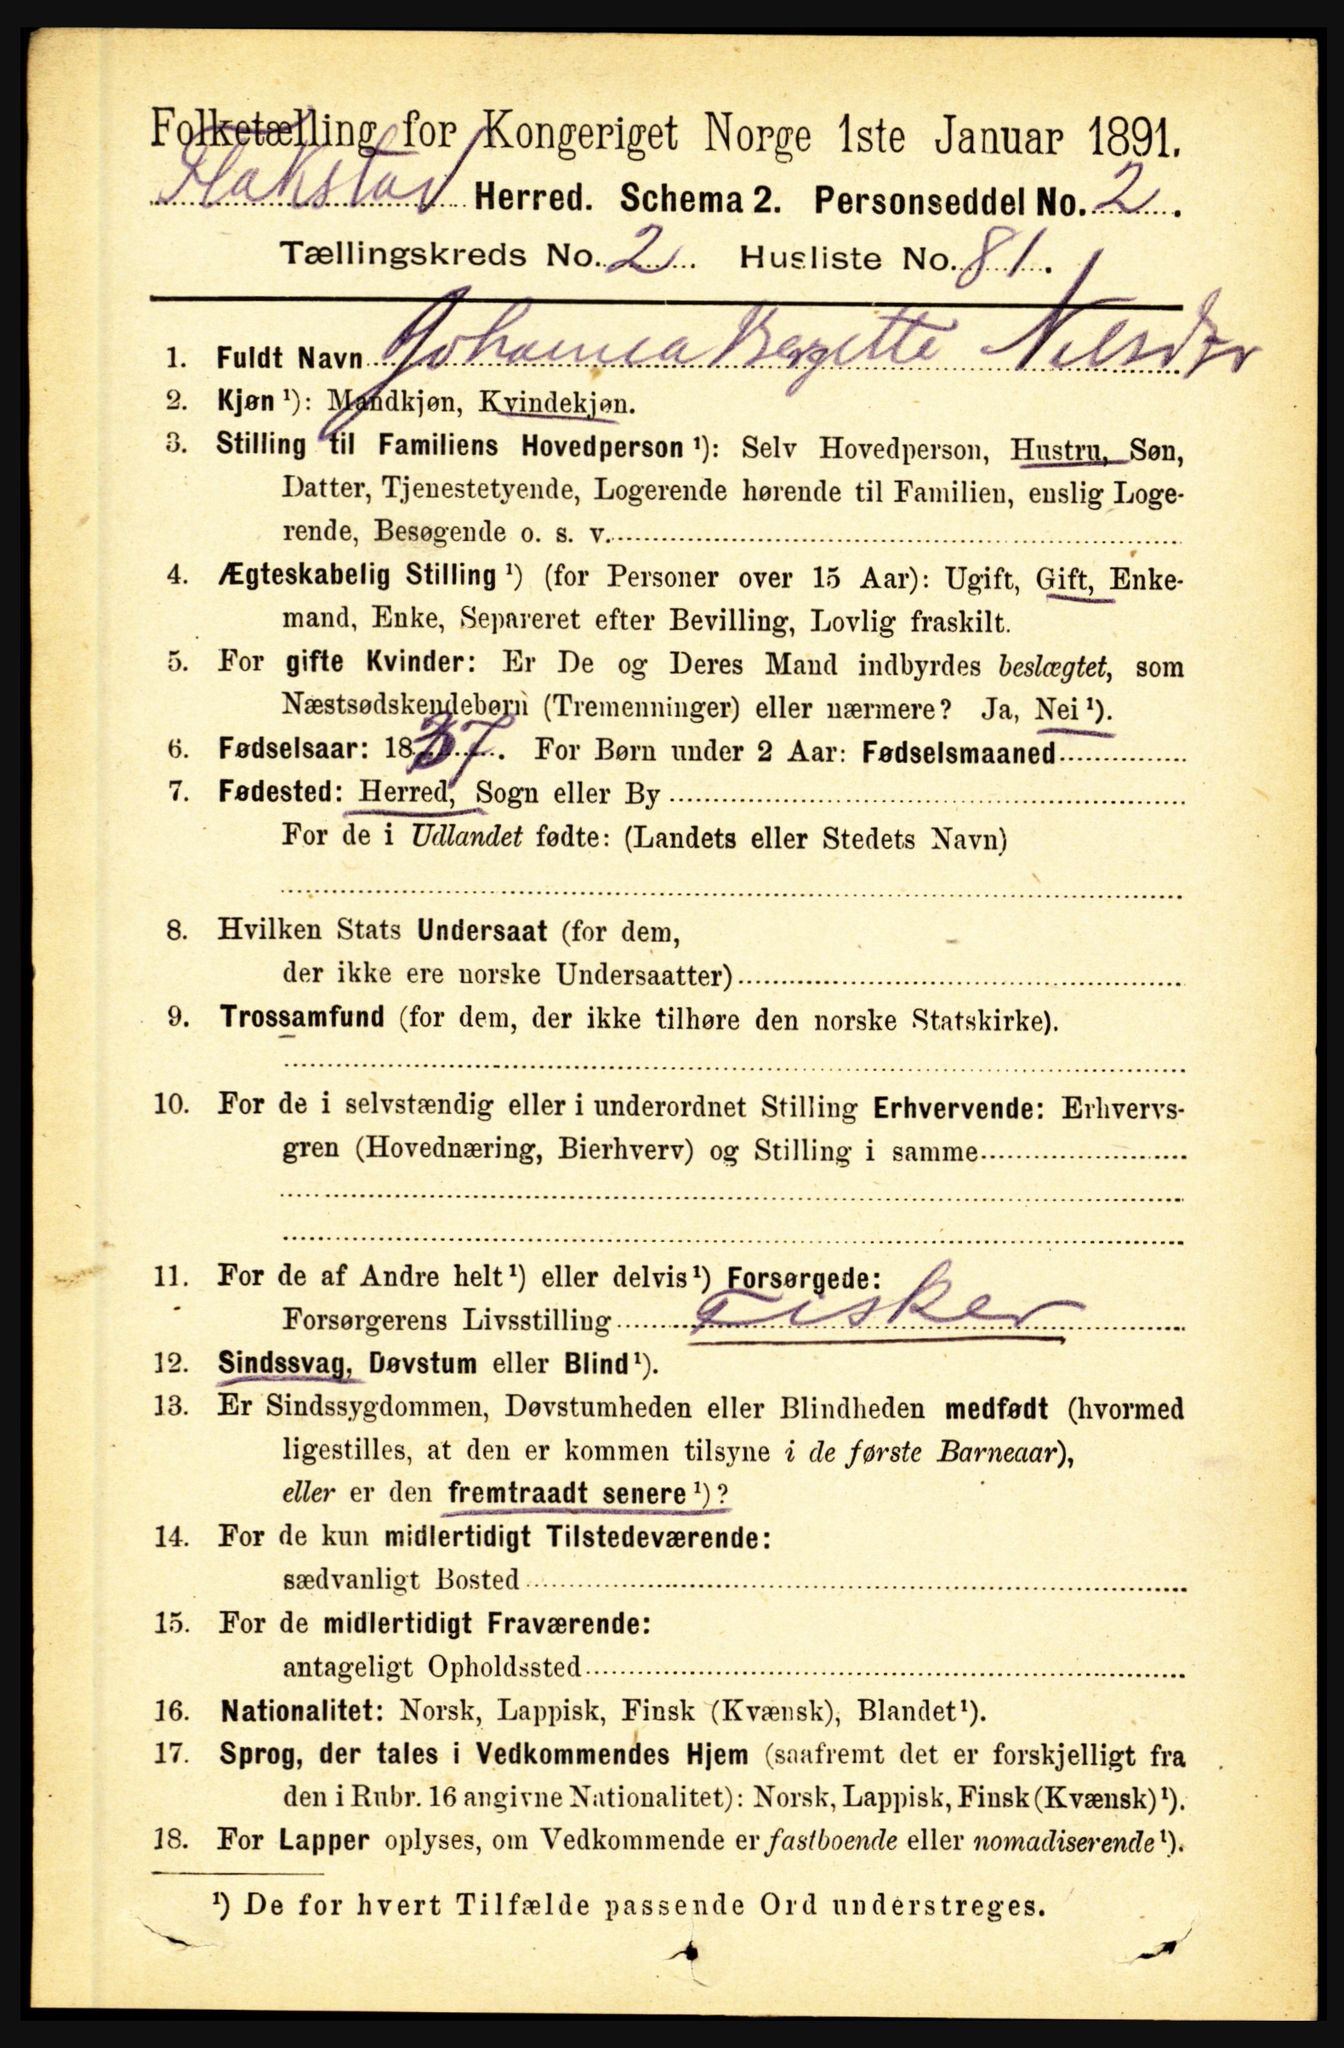 Folketælling for Kongeriget Norge 1ste Januar 1891.
Flakstad Herred. Schema 2. Personseddel No. 2.
Tællingskreds No. 2. Husliste No. 81.
1. Fuldt Navn Johanna Bergette Nilsdtr
2. Kjøn ¹): Mandkjøn, Kvindekjøn.
3. Stilling til Familiens Hovedperson ¹): Selv Hovedperson, Hustru, Søn,
Datter, Tjenestetyende, Logerende hørende til Familien, enslig Loge-
rende, Besøgende o. s. v.
4. Ægteskabelig Stilling ¹) (for Personer over 15 Aar): Ugift, Gift, Enke-
mand, Enke, Separeret efter Bevilling, Lovlig fraskilt.
5. For gifte Kvinder: Er De og Deres Mand indbyrdes beslægtet, som
Næstsødskendebørn (Tremenninger) eller nærmere? Ja, Nei ¹).
6. Fødselsaar: 1837. For Børn under 2 Aar: Fødselsmaaned
7. Fødested: Herred, Sogn eller By
For de i Udlandet fødte: (Landets eller Stedets Navn)
8. Hvilken Stats Undersaat (for dem,
der ikke ere norske Undersaatter)
9. Trossamfund (for dem, der ikke tilhøre den norske Statskirke).
10. For de i selvstændig eller i underordnet Stilling Erhvervende: Erhvervs-
gren (Hovednæring, Bierhverv) og Stilling i samme
11. For de af Andre helt ¹) eller delvis ¹) Forsørgede:
Forsørgerens Livsstilling Fisker
12. Sindssvag, Døvstum eller Blind ¹).
13. Er Sindssygdommen, Døvstumheden eller Blindheden medfødt (hvormed
ligestilles, at den er kommen tilsyne i de første Barneaar),
eller er den fremtraadt senere ¹)?
14. For de kun midlertidigt Tilstedeværende:
sædvanligt Bosted
15. For de midlertidigt Fraværende:
antageligt Opholdssted
16. Nationalitet: Norsk, Lappisk, Finsk (Kvænsk), Blandet ¹).
17. Sprog, der tales i Vedkommendes Hjem (saafremt det er forskjelligt fra
den i Rubr. 16 angivne Nationalitet): Norsk, Lappisk, Finsk (Kvænsk) ¹).
18. For Lapper oplyses, om Vedkommende er fastboende eller nomadiserende ¹).
¹) De for hvert Tilfælde passende Ord understreges.